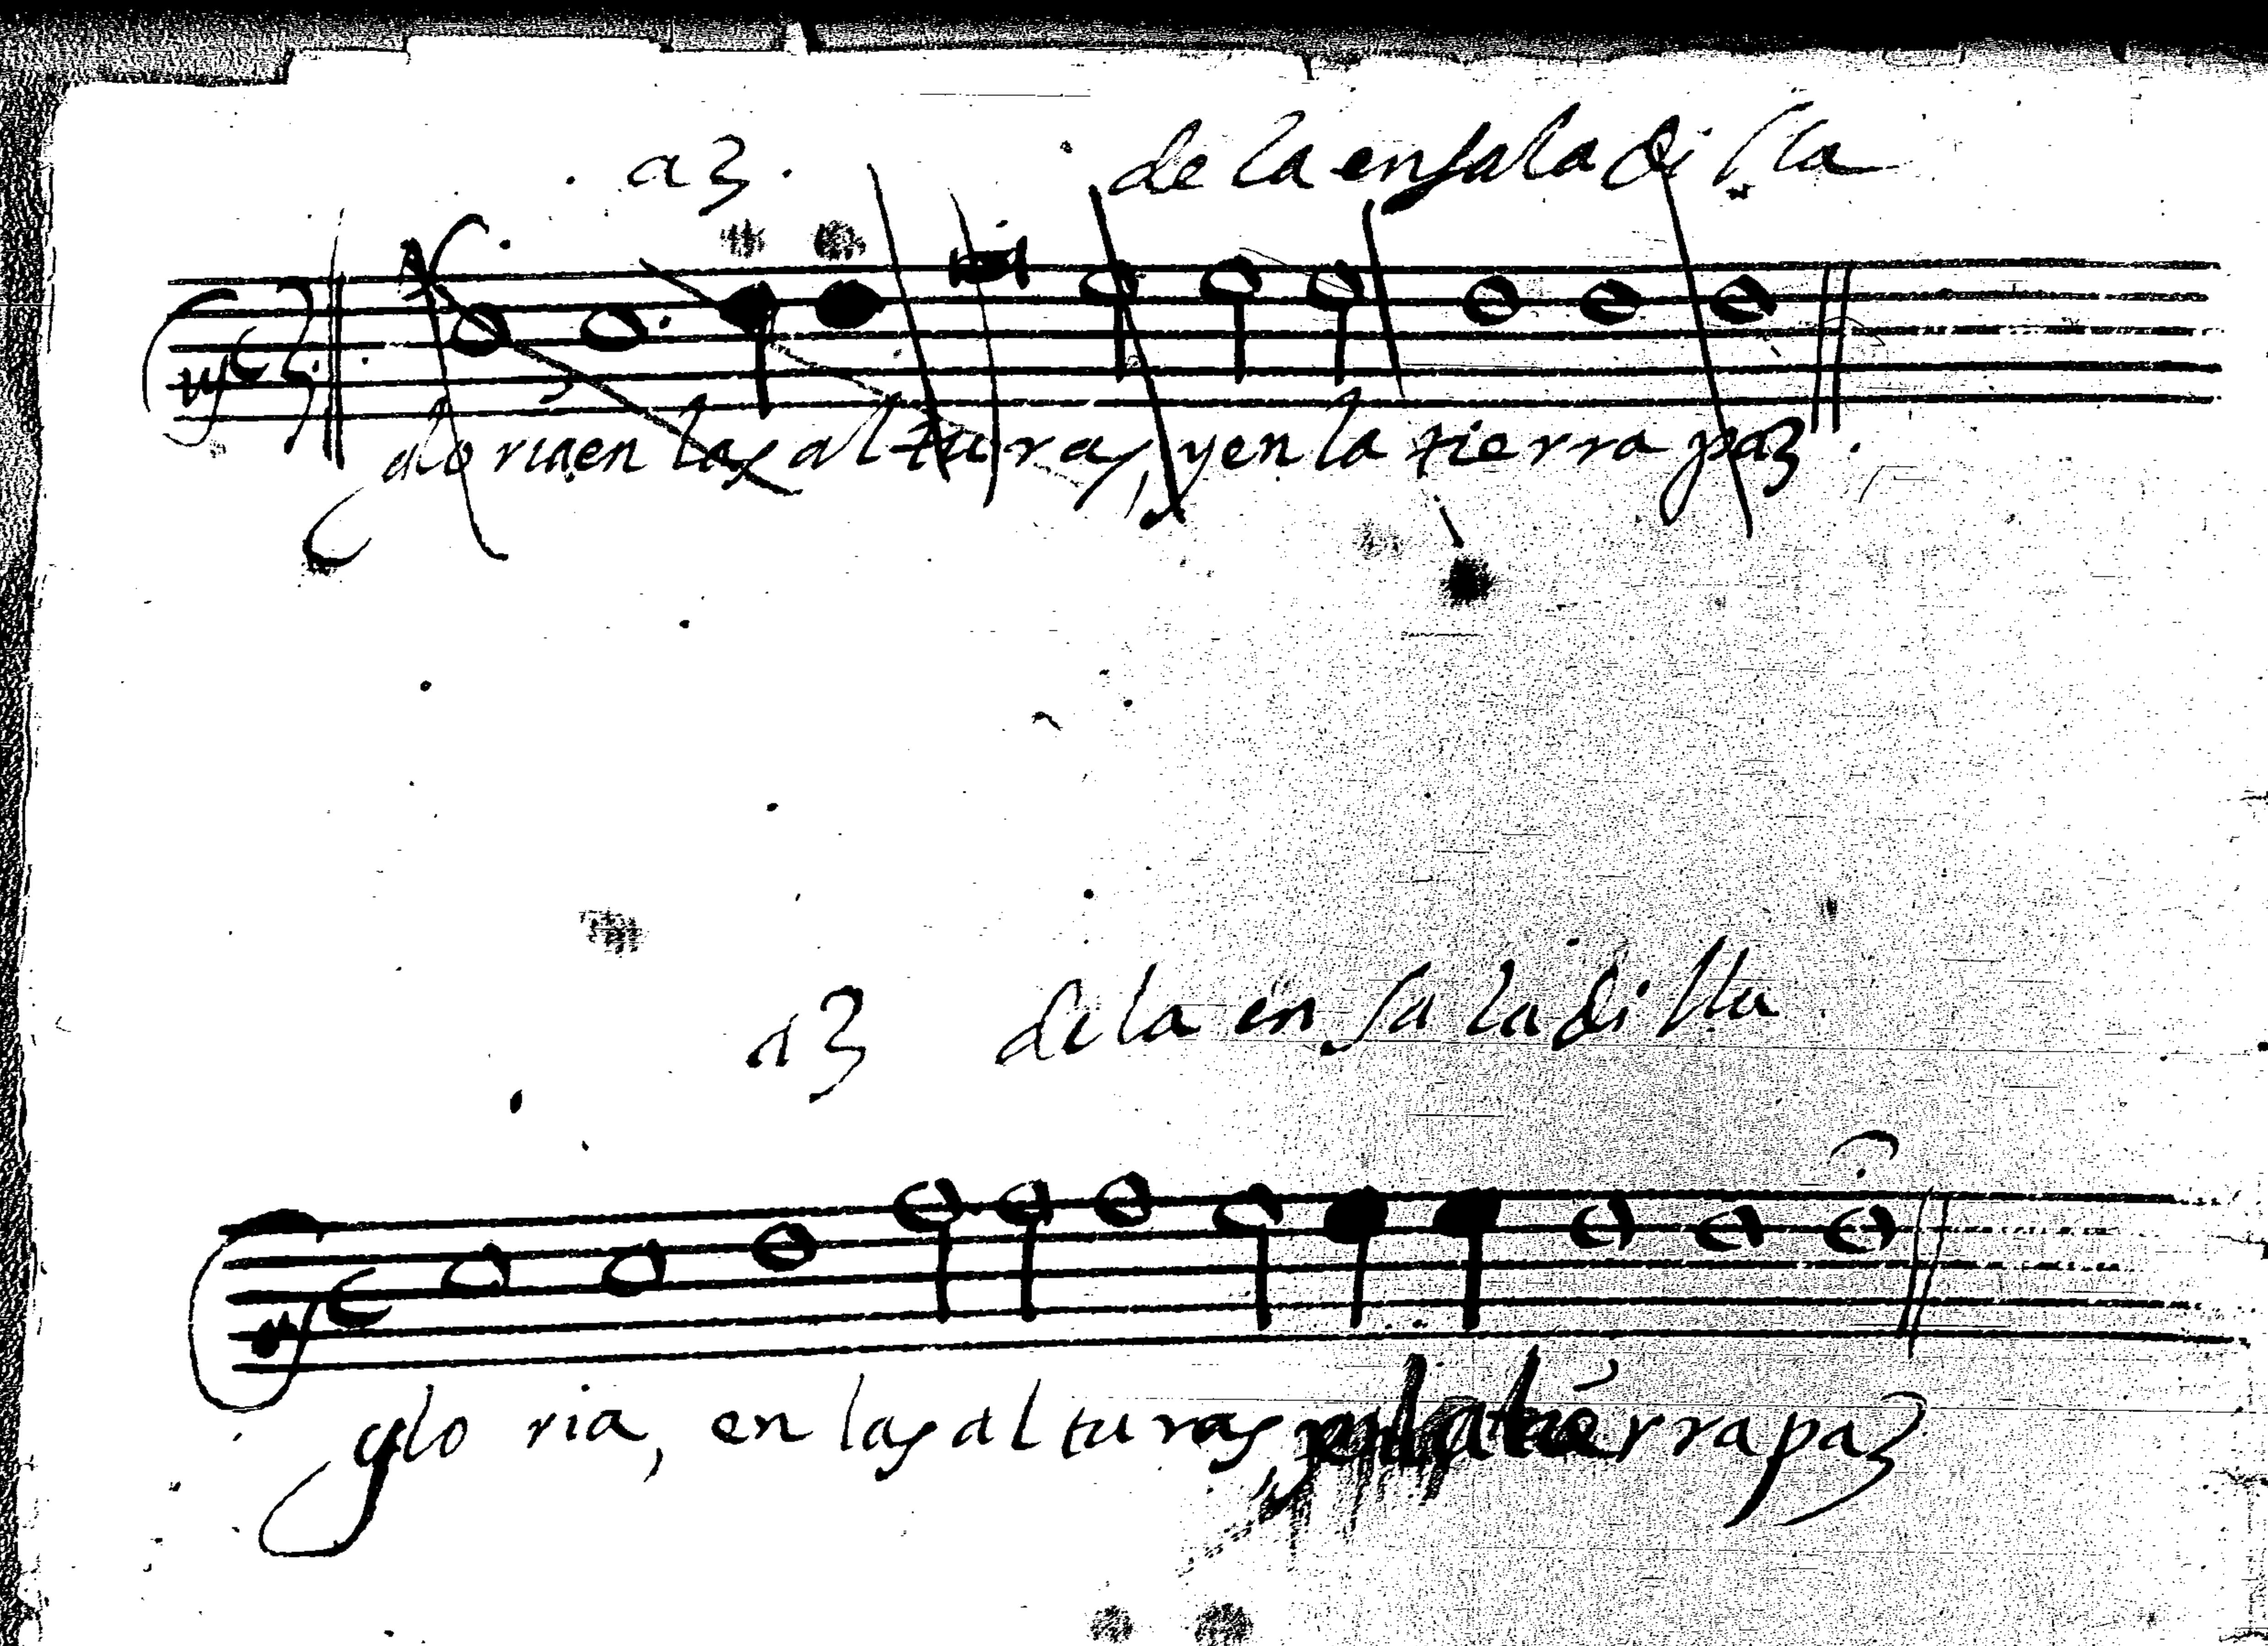 a3. de la ensaladilla
gloria en las alturas, y en la tierra paz.
a3 de la ensaladilla
gloria, en las alturas y en la tierra paz